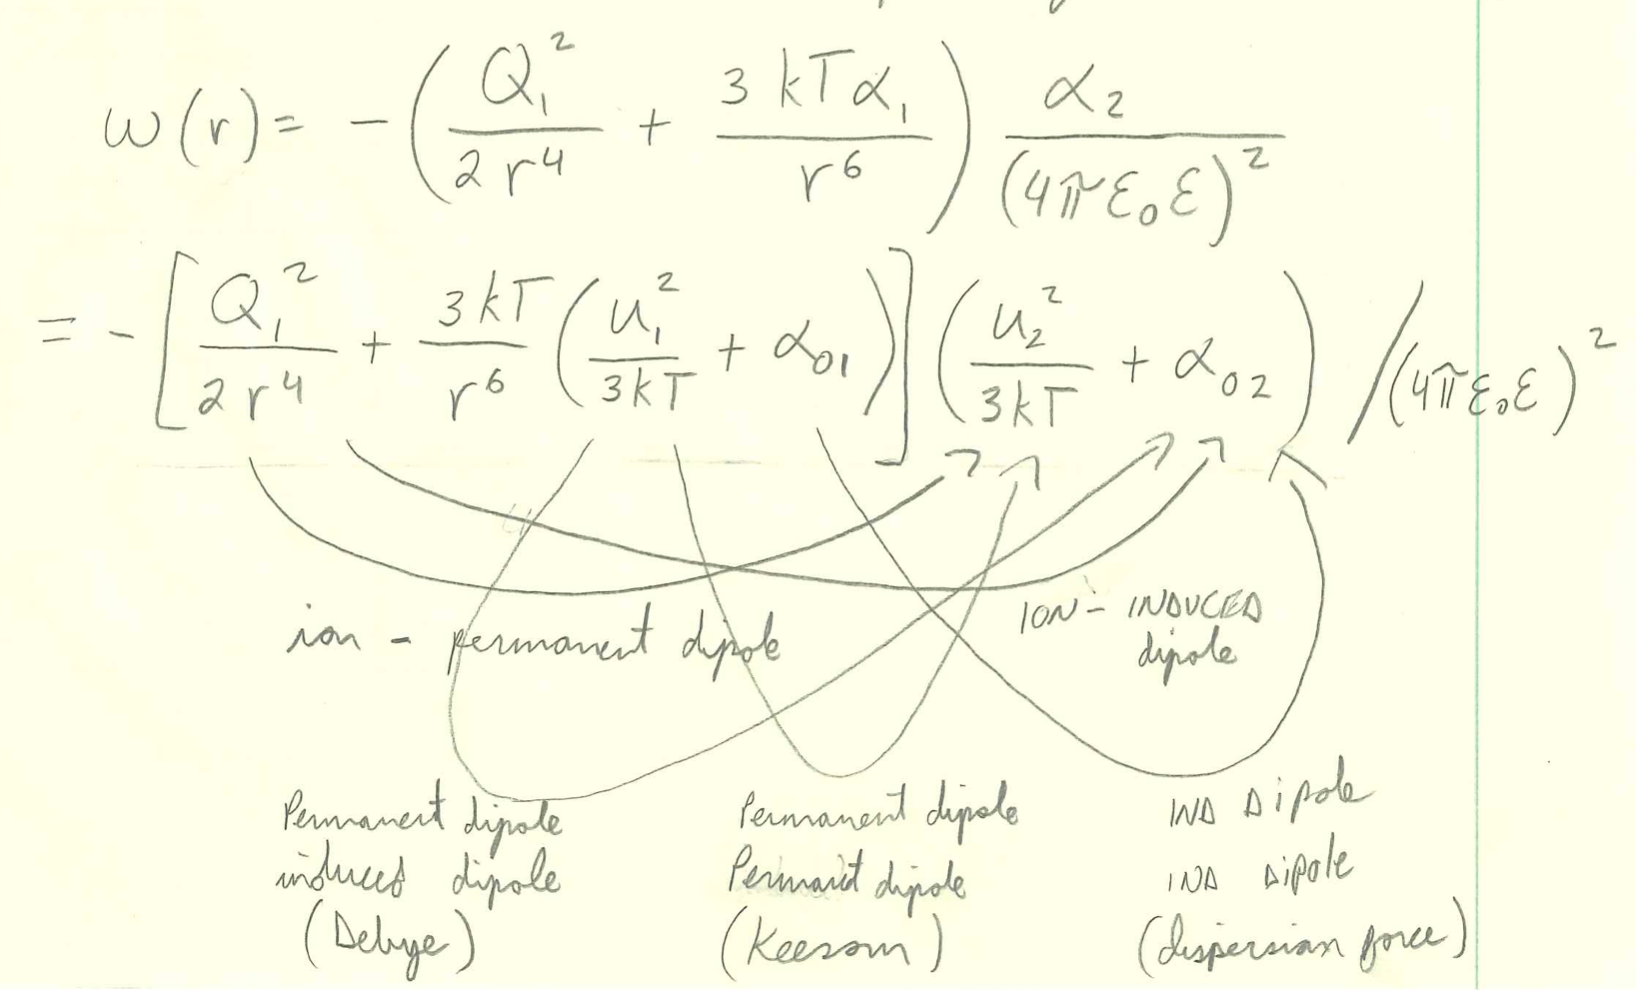 w(r) = - ( Q₁² / 2r⁴ + 3kTα₁ / r⁶ ) α₂ / (4πε₀ε)²
= - [ Q₁² / 2r⁴ + 3kT / r⁶ ( u₁² / 3kT + α₀₁ ) ] ( u₂² / 3kT + α₀₂ ) / (4πε₀ε)²
ion - permanent dipole
ION - INDUCED
dipole
Permanent dipole
induced dipole
(Debye)
Permanent dipole
Permanent dipole
(Keesom)
IND Dipole
IND DIPOLE
(dispersion force)